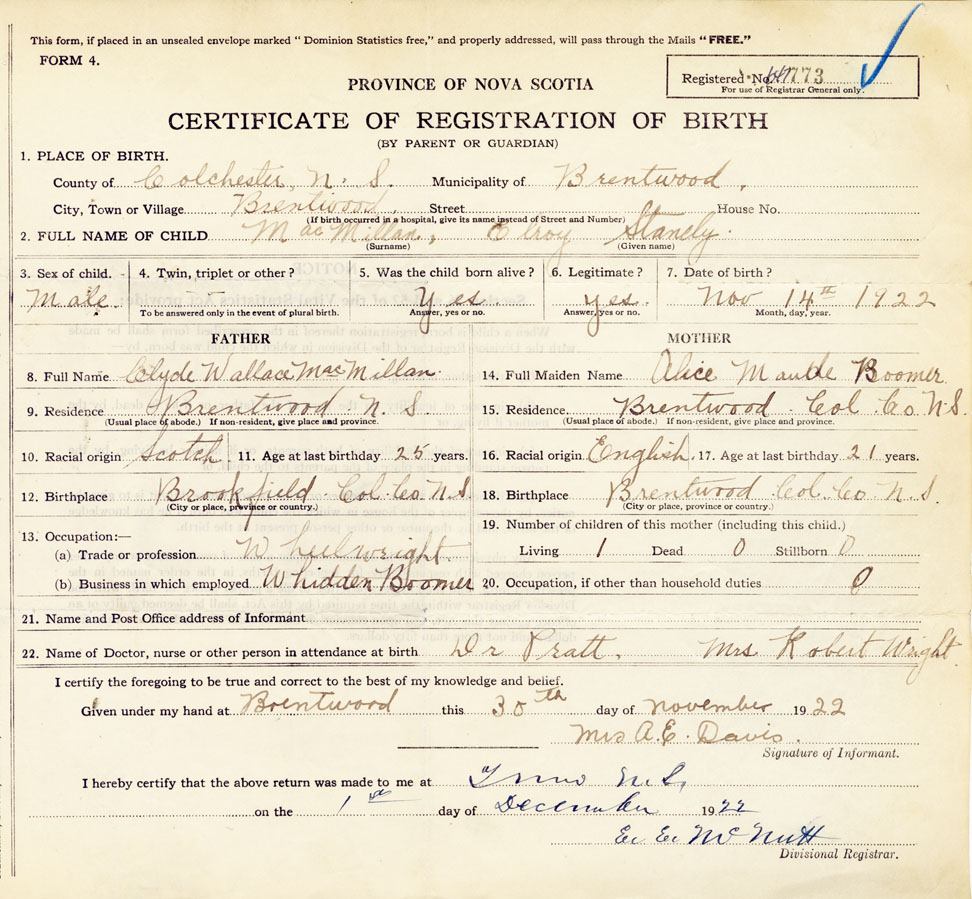 This form, if placed in an unsealed envelope marked "Dominion Statistics free," and properly addressed, will pass through the Mails "FREE."
FORM 4.
Registered No. 773
For use of Registrar General only.
PROVINCE OF NOVA SCOTIA
CERTIFICATE OF REGISTRATION OF BIRTH
(BY PARENT OR GUARDIAN)
1. PLACE OF BIRTH.
County of Colchester, N. S. Municipality of Brentwood,
City, Town or Village Brentwood, Street House No.
(If birth occurred in a hospital, give its name instead of Street and Number)
2. FULL NAME OF CHILD MacMillan, Elroy Stanely.
(Surname) (Given name)
3. Sex of child. 4. Twin, triplet or other? 5. Was the child born alive? 6. Legitimate? 7. Date of birth?
Male. Yes. yes. Nov 14th 1922
To be answered only in the event of plural birth. Answer, yes or no. Answer, yes or no. Month, day, year.
FATHER MOTHER
8. Full Name Clyde Wallace MacMillan. 14. Full Maiden Name Alice Maude Boomer
9. Residence Brentwood N. S. 15. Residence. Brentwood Col. Co. N.S.
(Usual place of abode.) If non-resident, give place and province. (Usual place of abode.) If non-resident, give place and province.
10. Racial origin Scotch 11. Age at last birthday 25 years. 16. Racial origin English. 17. Age at last birthday 21 years.
12. Birthplace Brookfield Col. Co. N.S. 18. Birthplace Brentwood Col. Co. N.S.
(City or place, province or country.) (City or place, province or country.)
13. Occupation:— 19. Number of children of this mother (including this child.)
(a) Trade or profession Wheelwright Living 1 Dead 0 Stillborn 0
(b) Business in which employed Whidden Boomer 20. Occupation, if other than household duties 0
21. Name and Post Office address of Informant
22. Name of Doctor, nurse or other person in attendance at birth Dr Pratt, Mrs Robert Wright
I certify the foregoing to be true and correct to the best of my knowledge and belief.
Given under my hand at Brentwood this 30th day of november 1922
Mrs A. E. Davis.
Signature of Informant.
I hereby certify that the above return was made to me at Truro N.S.
on the 1st day of December 1922
E. E. McNutt
Divisional Registrar.